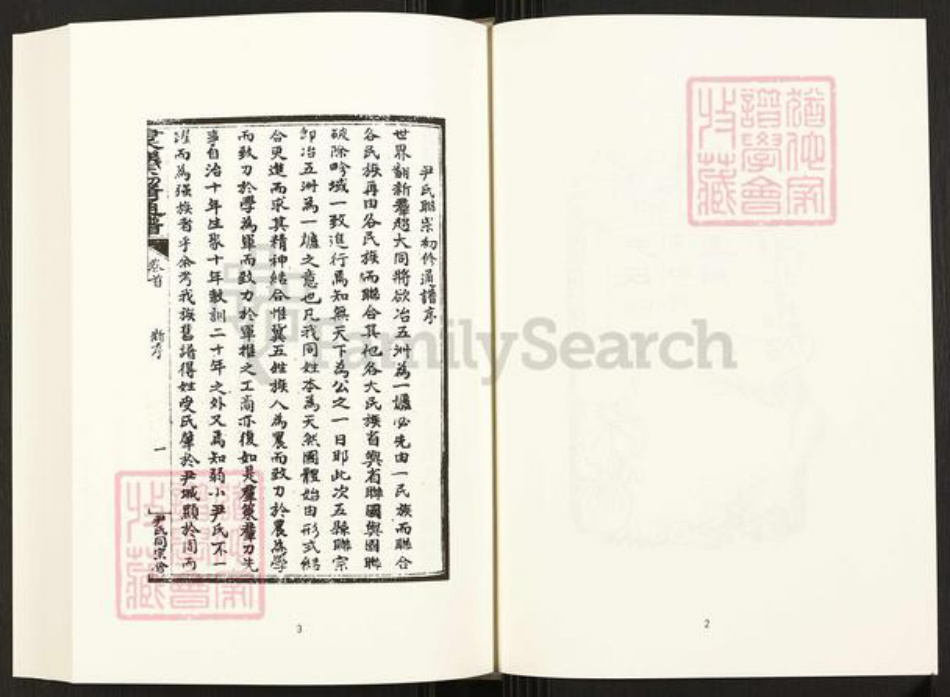 尹氏聯宗初修通譜序
世界翻新羣趨大同將欲冶五洲為一爐必先由一民族而聯合
各民族再由各民族而聯合其他各大民族省與省聯國與國聯
破除畛域一致進行焉知無天下為公之一日耶此次五縣聯宗
即冶五洲為一爐之意也凡我同姓本為天然團體始由形式結
合更進而求其精神結合惟冀五姓族人為農而致力於農為學
而致力於學為軍而致力於軍推之工商亦復如是羣策羣力先
事自治十年生聚十年教訓二十年之外又焉知弱小尹氏不一
躍而為強族者乎余考我族舊譜得姓受氏肇於尹城顯於周而
卷首
一
尹氏同宗修
3
猶他家
譜學會
收藏
猶他家
譜學會
收藏
2
FamilySearch